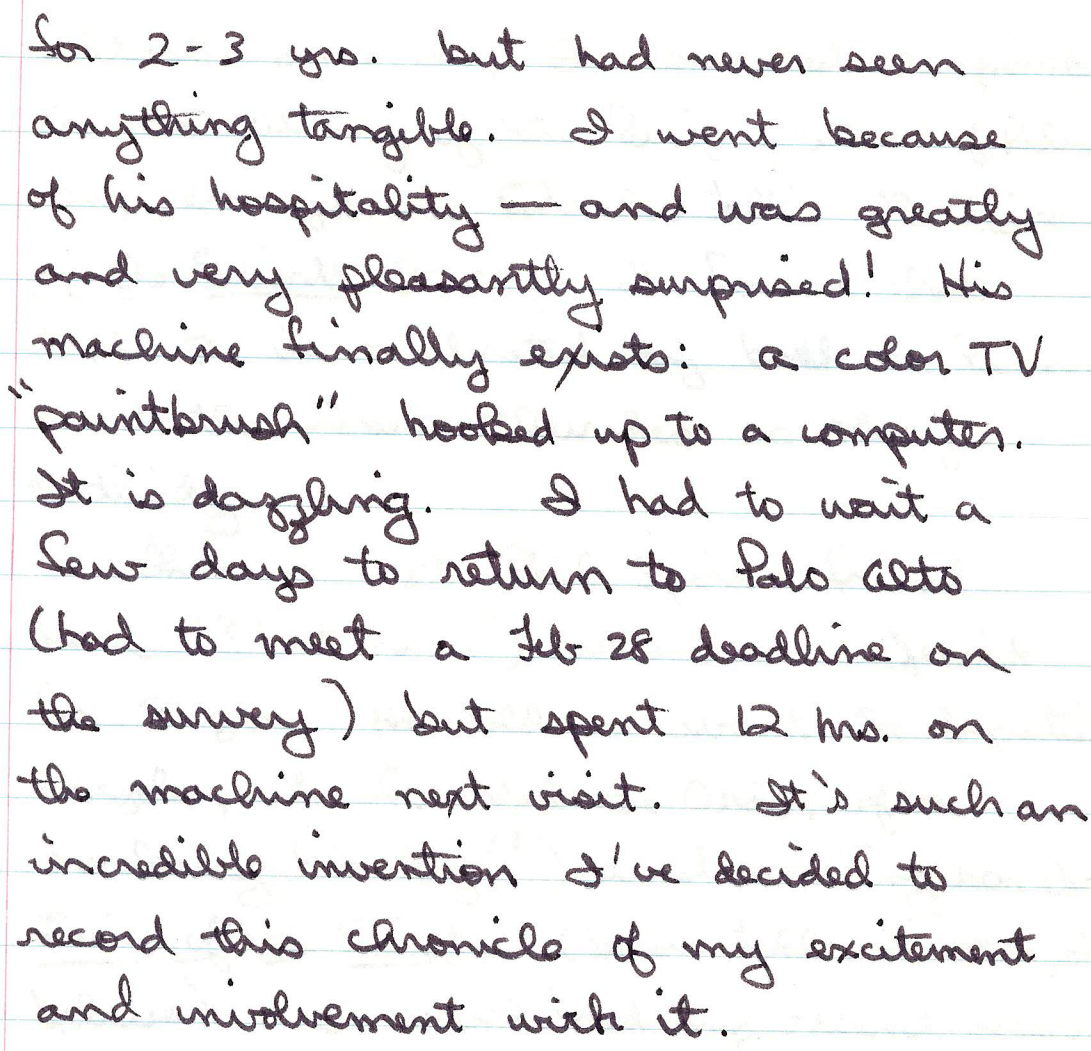 for 2-3 yrs. but had never seen
anything tangible. I went because
of his hospitality — and was greatly
and very pleasantly surprised! His
machine finally exists: a color TV
"paintbrush" hooked up to a computer.
It is dazzling. I had to wait a
few days to return to Palo Alto
(had to meet a Feb 28 deadline on
the survey) but spent 12 hrs. on
the machine next visit. It's such an
incredible invention I've decided to
record this chronicle of my excitement
and involvement with it.